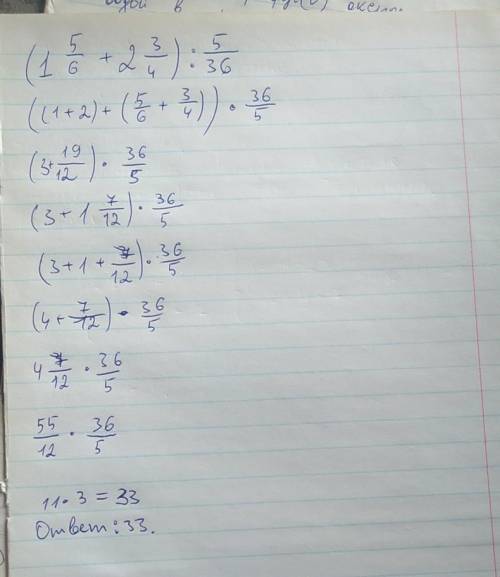 в
(1 5/6 + 2 3/4) : 5/36
((1+2) + (5/6 + 3/4)) • 36/5
(3+ 19/12) • 36/5
(3 + 1 7/12) • 36/5
(3+1 + 7/12) • 36/5
(4 + 7/12) • 36/5
4 7/12 • 36/5
55/12 • 36/5
11 • 3 = 33
Ответ: 33.